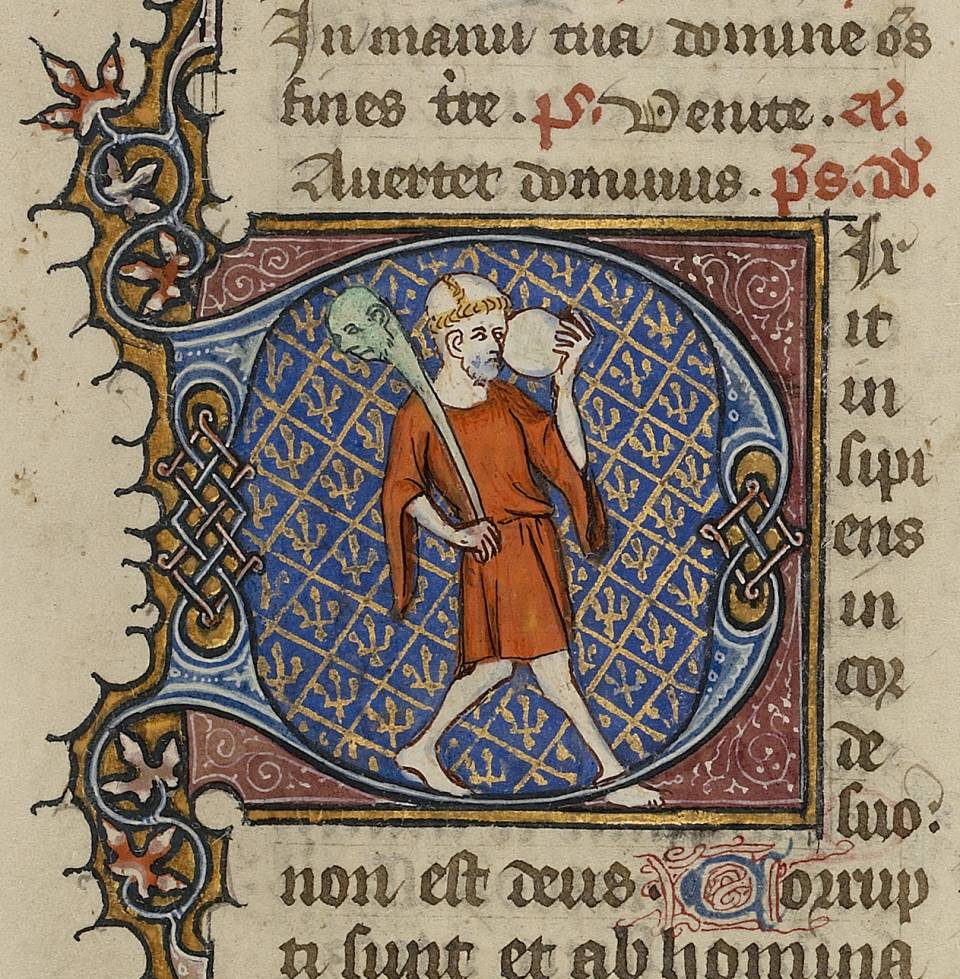 In manu tua domine o̅s
fines t̅re . p̅s. Venite . a̅.
Auertet dominus. p̅s. dd̅.
Ix
it
in
sipi
ens
in
cor
de
suo:
non est deus . Corrup
ti sunt et abhomina